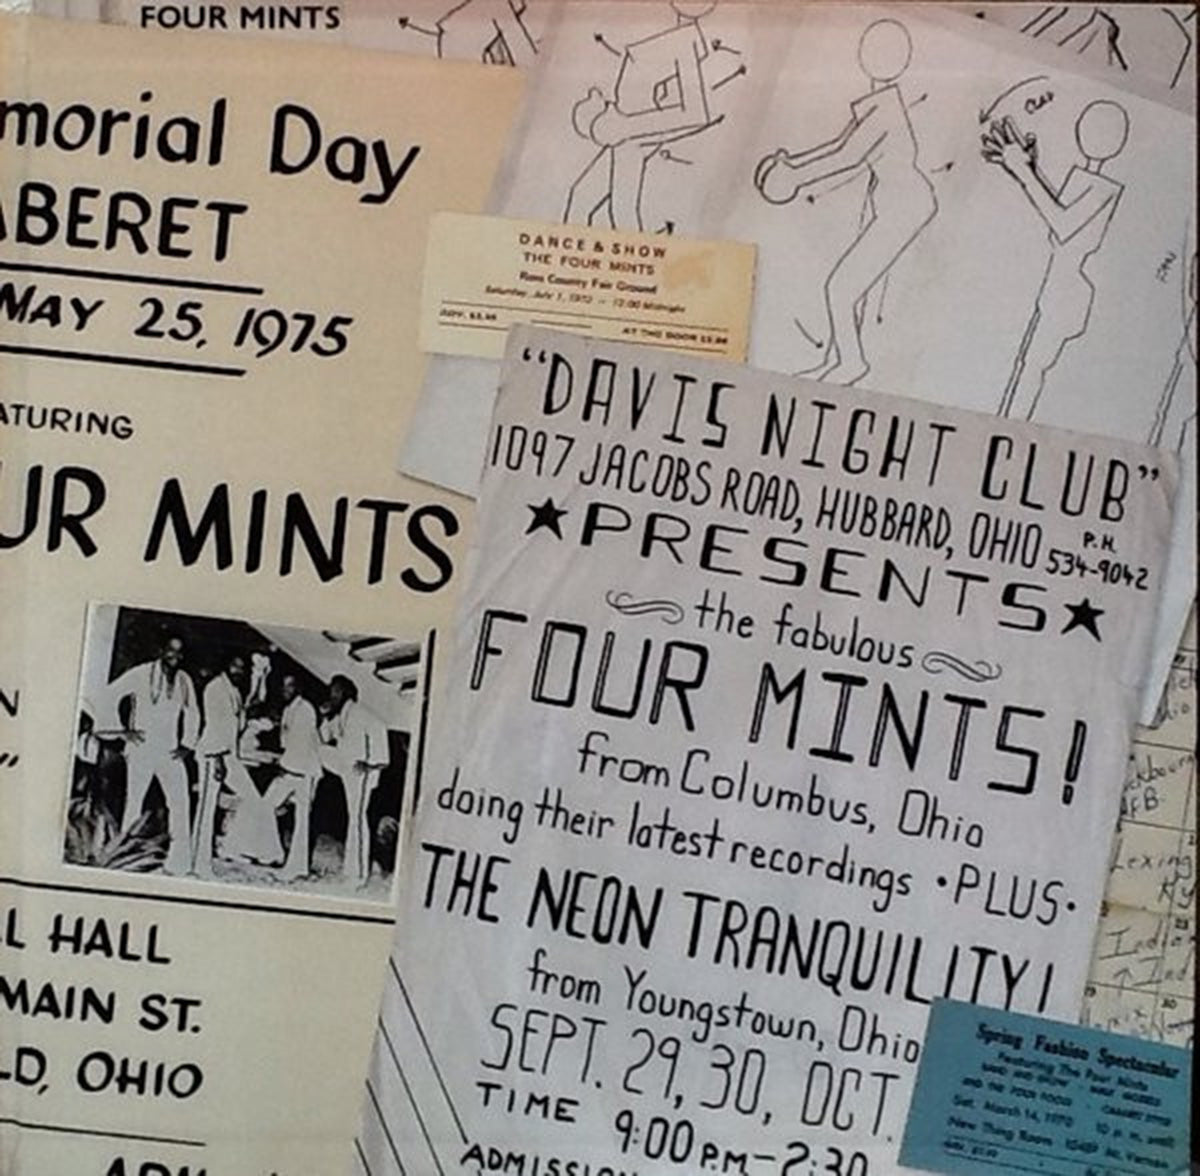 FOUR MINTS
morial Day
ABERET
MAY 25, 1975
ATURING
UR MINTS
N
"
LL HALL
MAIN ST.
LD, OHIO
DANCE & SHOW
THE FOUR MINTS
Ross County Fair Ground
Saturday, July 1, 1972 — 12:00 Midnight
AT THE DOOR
"DAVIS NIGHT CLUB"
1097 JACOBS ROAD, HUBBARD, OHIO P.H. 534-9042
★PRESENTS★
the fabulous
FOUR MINTS!
from Columbus, Ohio
doing their latest recordings •PLUS•
THE NEON TRANQUILITY!
from Youngstown, Ohio
SEPT. 29, 30, OCT.
TIME 9:00 P.M–2:30
ADMISSION
Spring Fashion Spectacular
Featuring The Four Mints
Sat. March 14, 1970
New Thing Room
Clap
Lexing
Ky